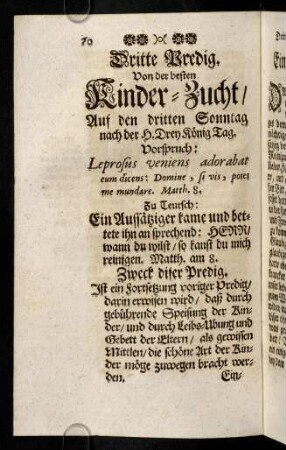 70
Dritte Predig.
Von der besten
Kinder-Zucht/
Auf den dritten Sonntag
nach der H. Drey König Tag.
Vorspruch:
Leprosus veniens adorabat
eum dicens: Domine, si vis, potes
me mundare. Matth. 8.
Zu Teutsch:
Ein Aussätziger kame und bet-
tete ihn an sprechend: HERR/
wann du wilst/ so kanst du mich
reinigen. Matth. am 8.
Zweck diser Predig.
Ist ein Fortsetzung voriger Predig/
darin erwisen wird/ daß durch
gebührende Speisung der Kin-
der/ und durch Leibs-Ubung und
Gebett der Eltern/ als gewissen
Mittlen/ die schöne Art der Kin-
der möge zuwegen bracht wer-
den.
Ein-